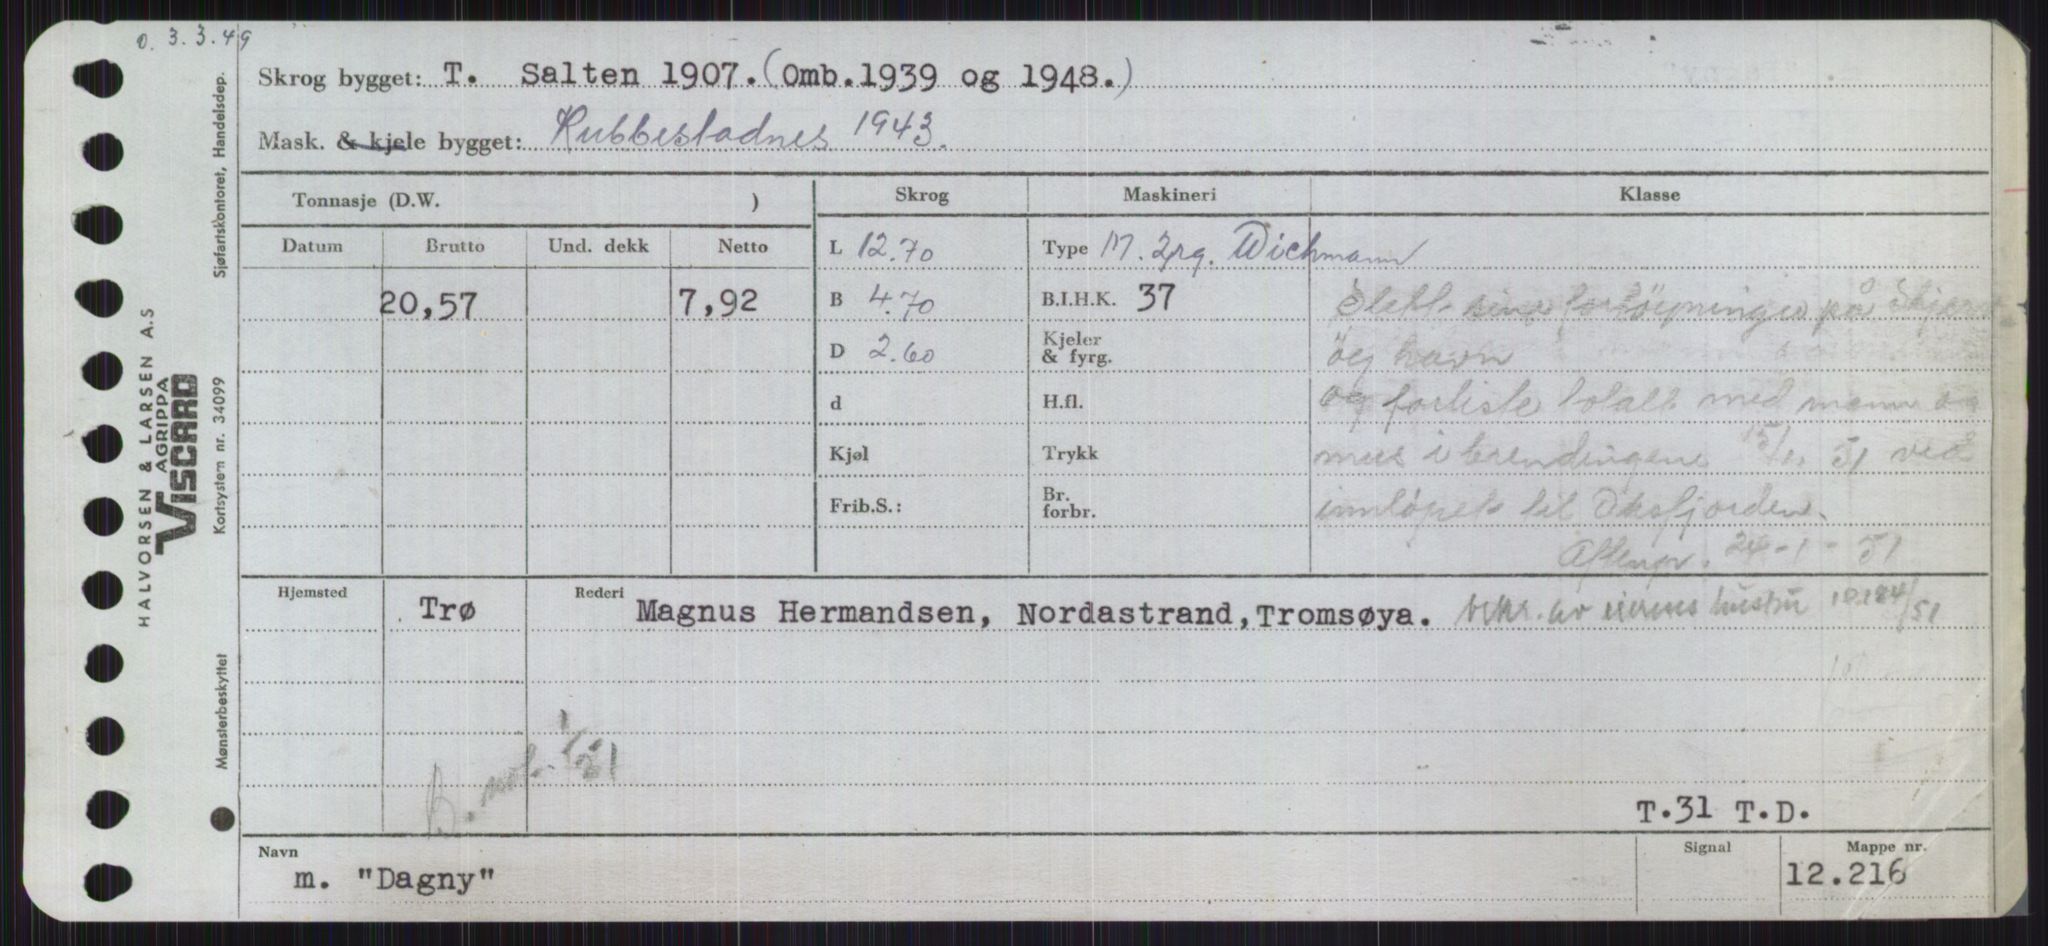 o. 3.3.49
Skrog bygget: T. Salten 1907. (Omb.1939 og 1948.)
Mask. & kjele bygget: Rubbestadnes 1943.
Tonnasje (D.W. )
Skrog
Maskineri
Klasse
Datum Brutto Und. dekk Netto
20,57 7,92
L 12.70
B 4.70
D 2.60
d
Kjøl
Frib.S.:
Type M. 2 Wichmann
B.I.H.K. 37
Kjeler
& fyrg.
H.fl.
Trykk
Br.
forbr.
Slett sine fortøyninger på
øy havn
og forliste totalt med mann og
mus i brendingene 15/1. 51 ved
innløpet til Oksfjorden.
Aftenp. 24-1-51
Hjemsted Trø
Rederi Magnus Hermandsen, Nordastrand, Tromsøya. bekr. av eierens hustru /51
B. not. 1/51
T.31 T.D.
Navn m. "Dagny"
Signal
Mappe nr. 12.216
HALVORSEN & LARSEN A.S
AGRIPPA
VISCARD
Sjøfartskontoret, Handelsdep.
Kortsystem nr. 34099
Mønsterbeskyttet